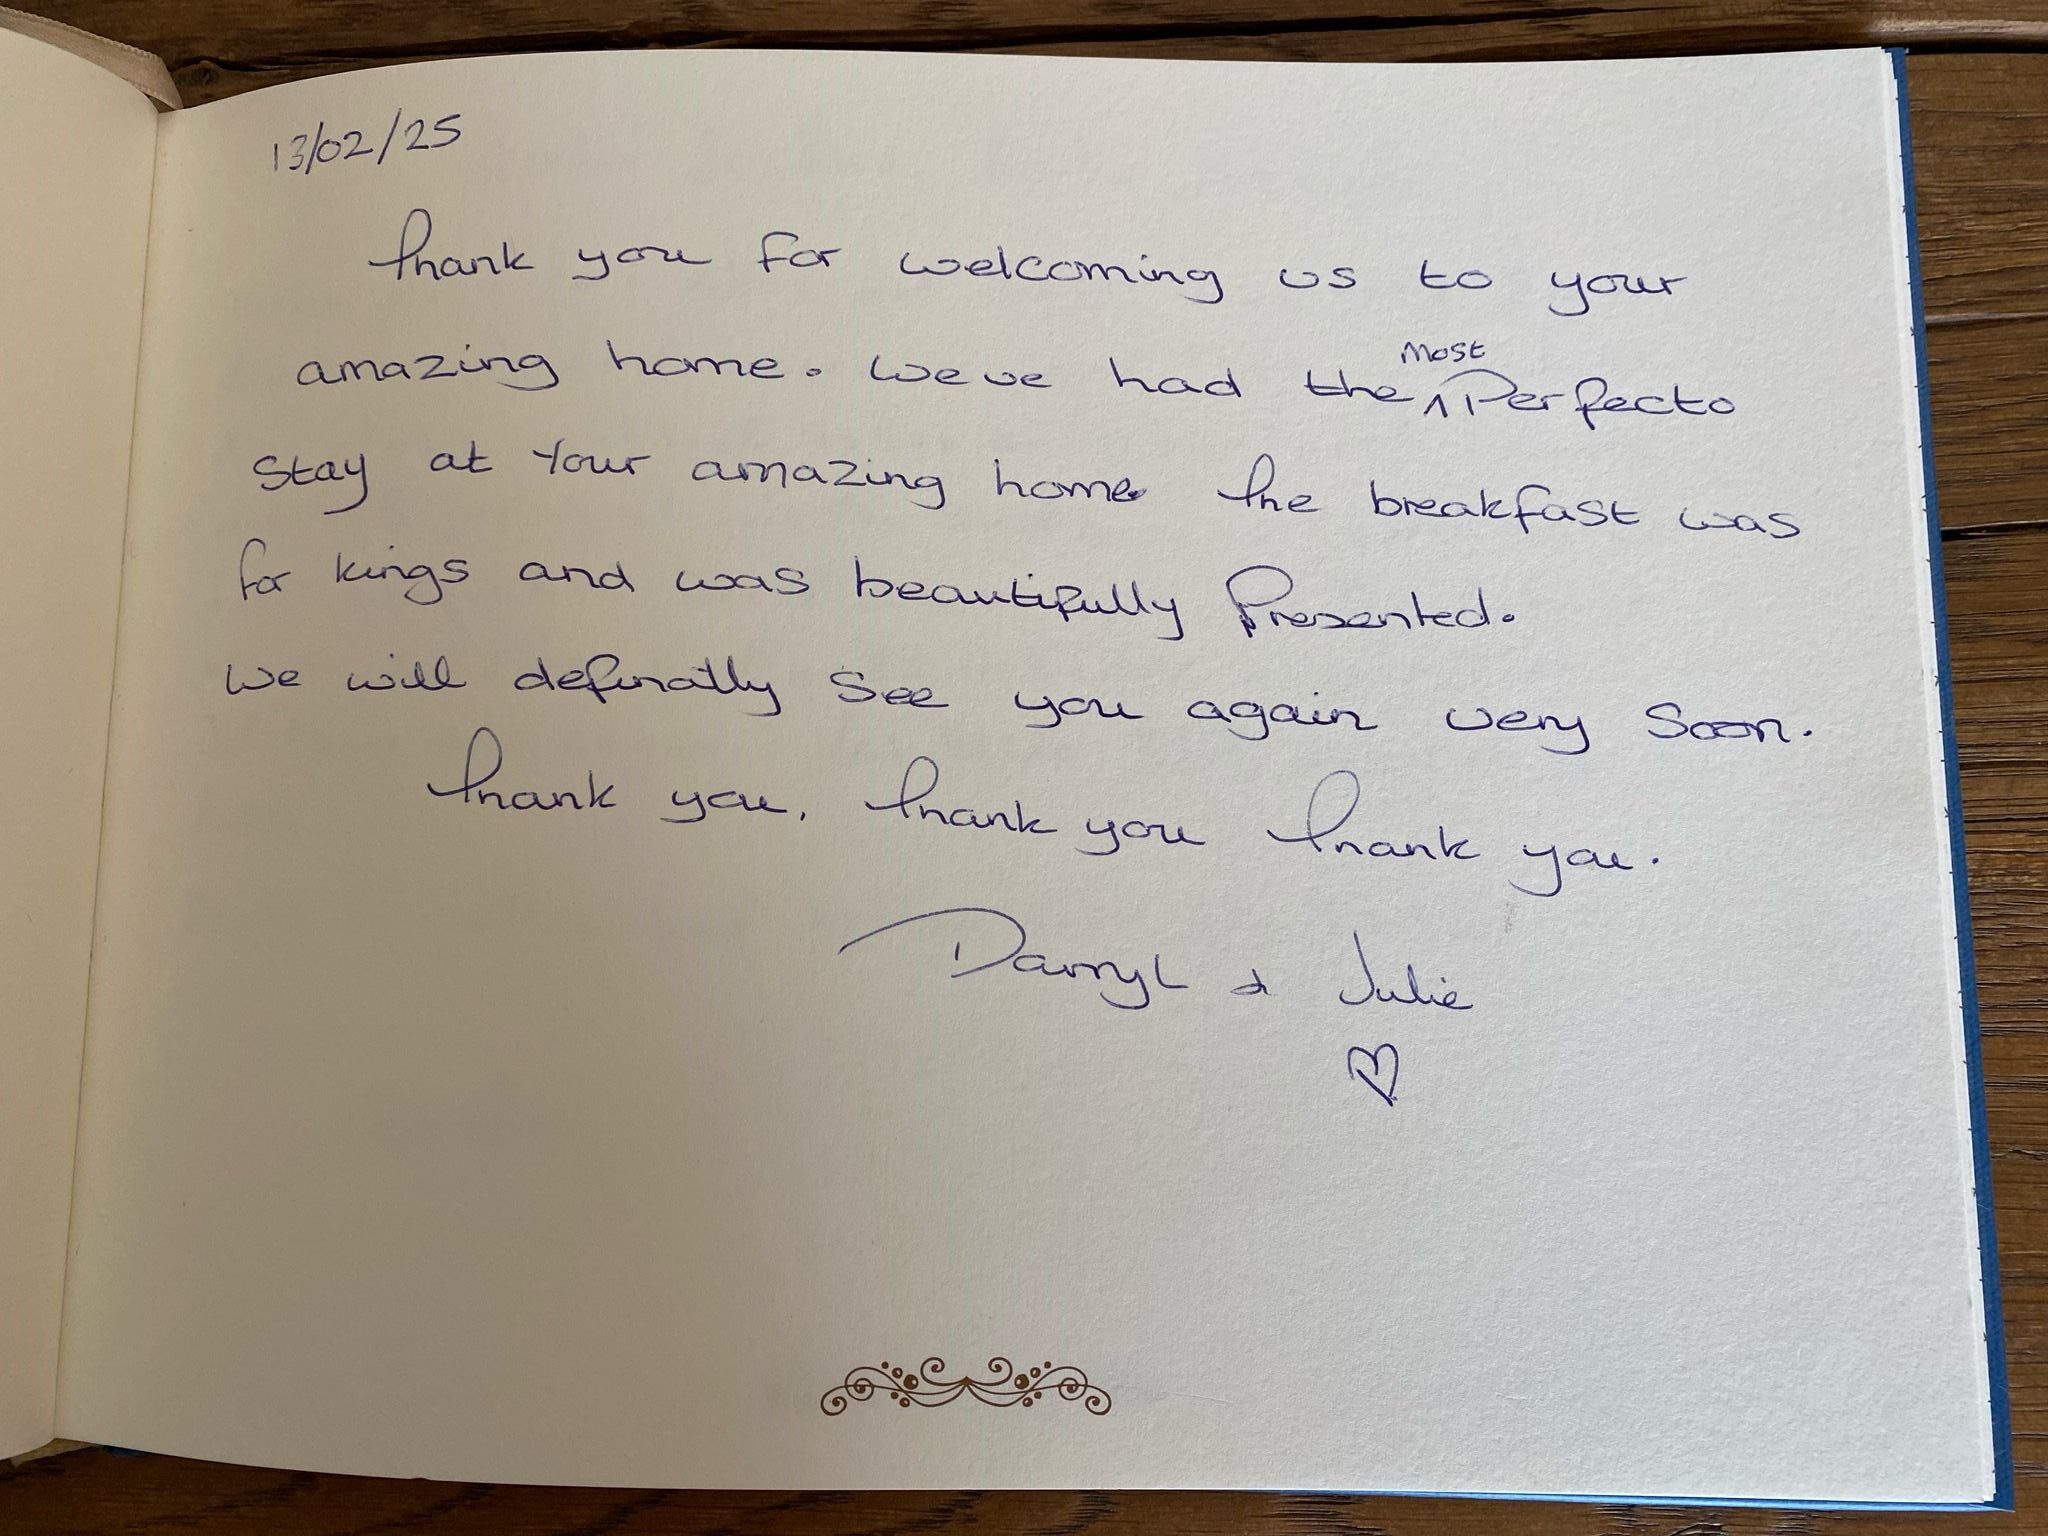 13/02/25
Thank you for welcoming us to your
amazing home. Weve had the most Perfecto
Stay at Your amazing home. The breakfast was
for kings and was beautifully Presented.
We will definatly See you again very Soon.
Thank you, Thank you Thank you.
Darryl & Julie